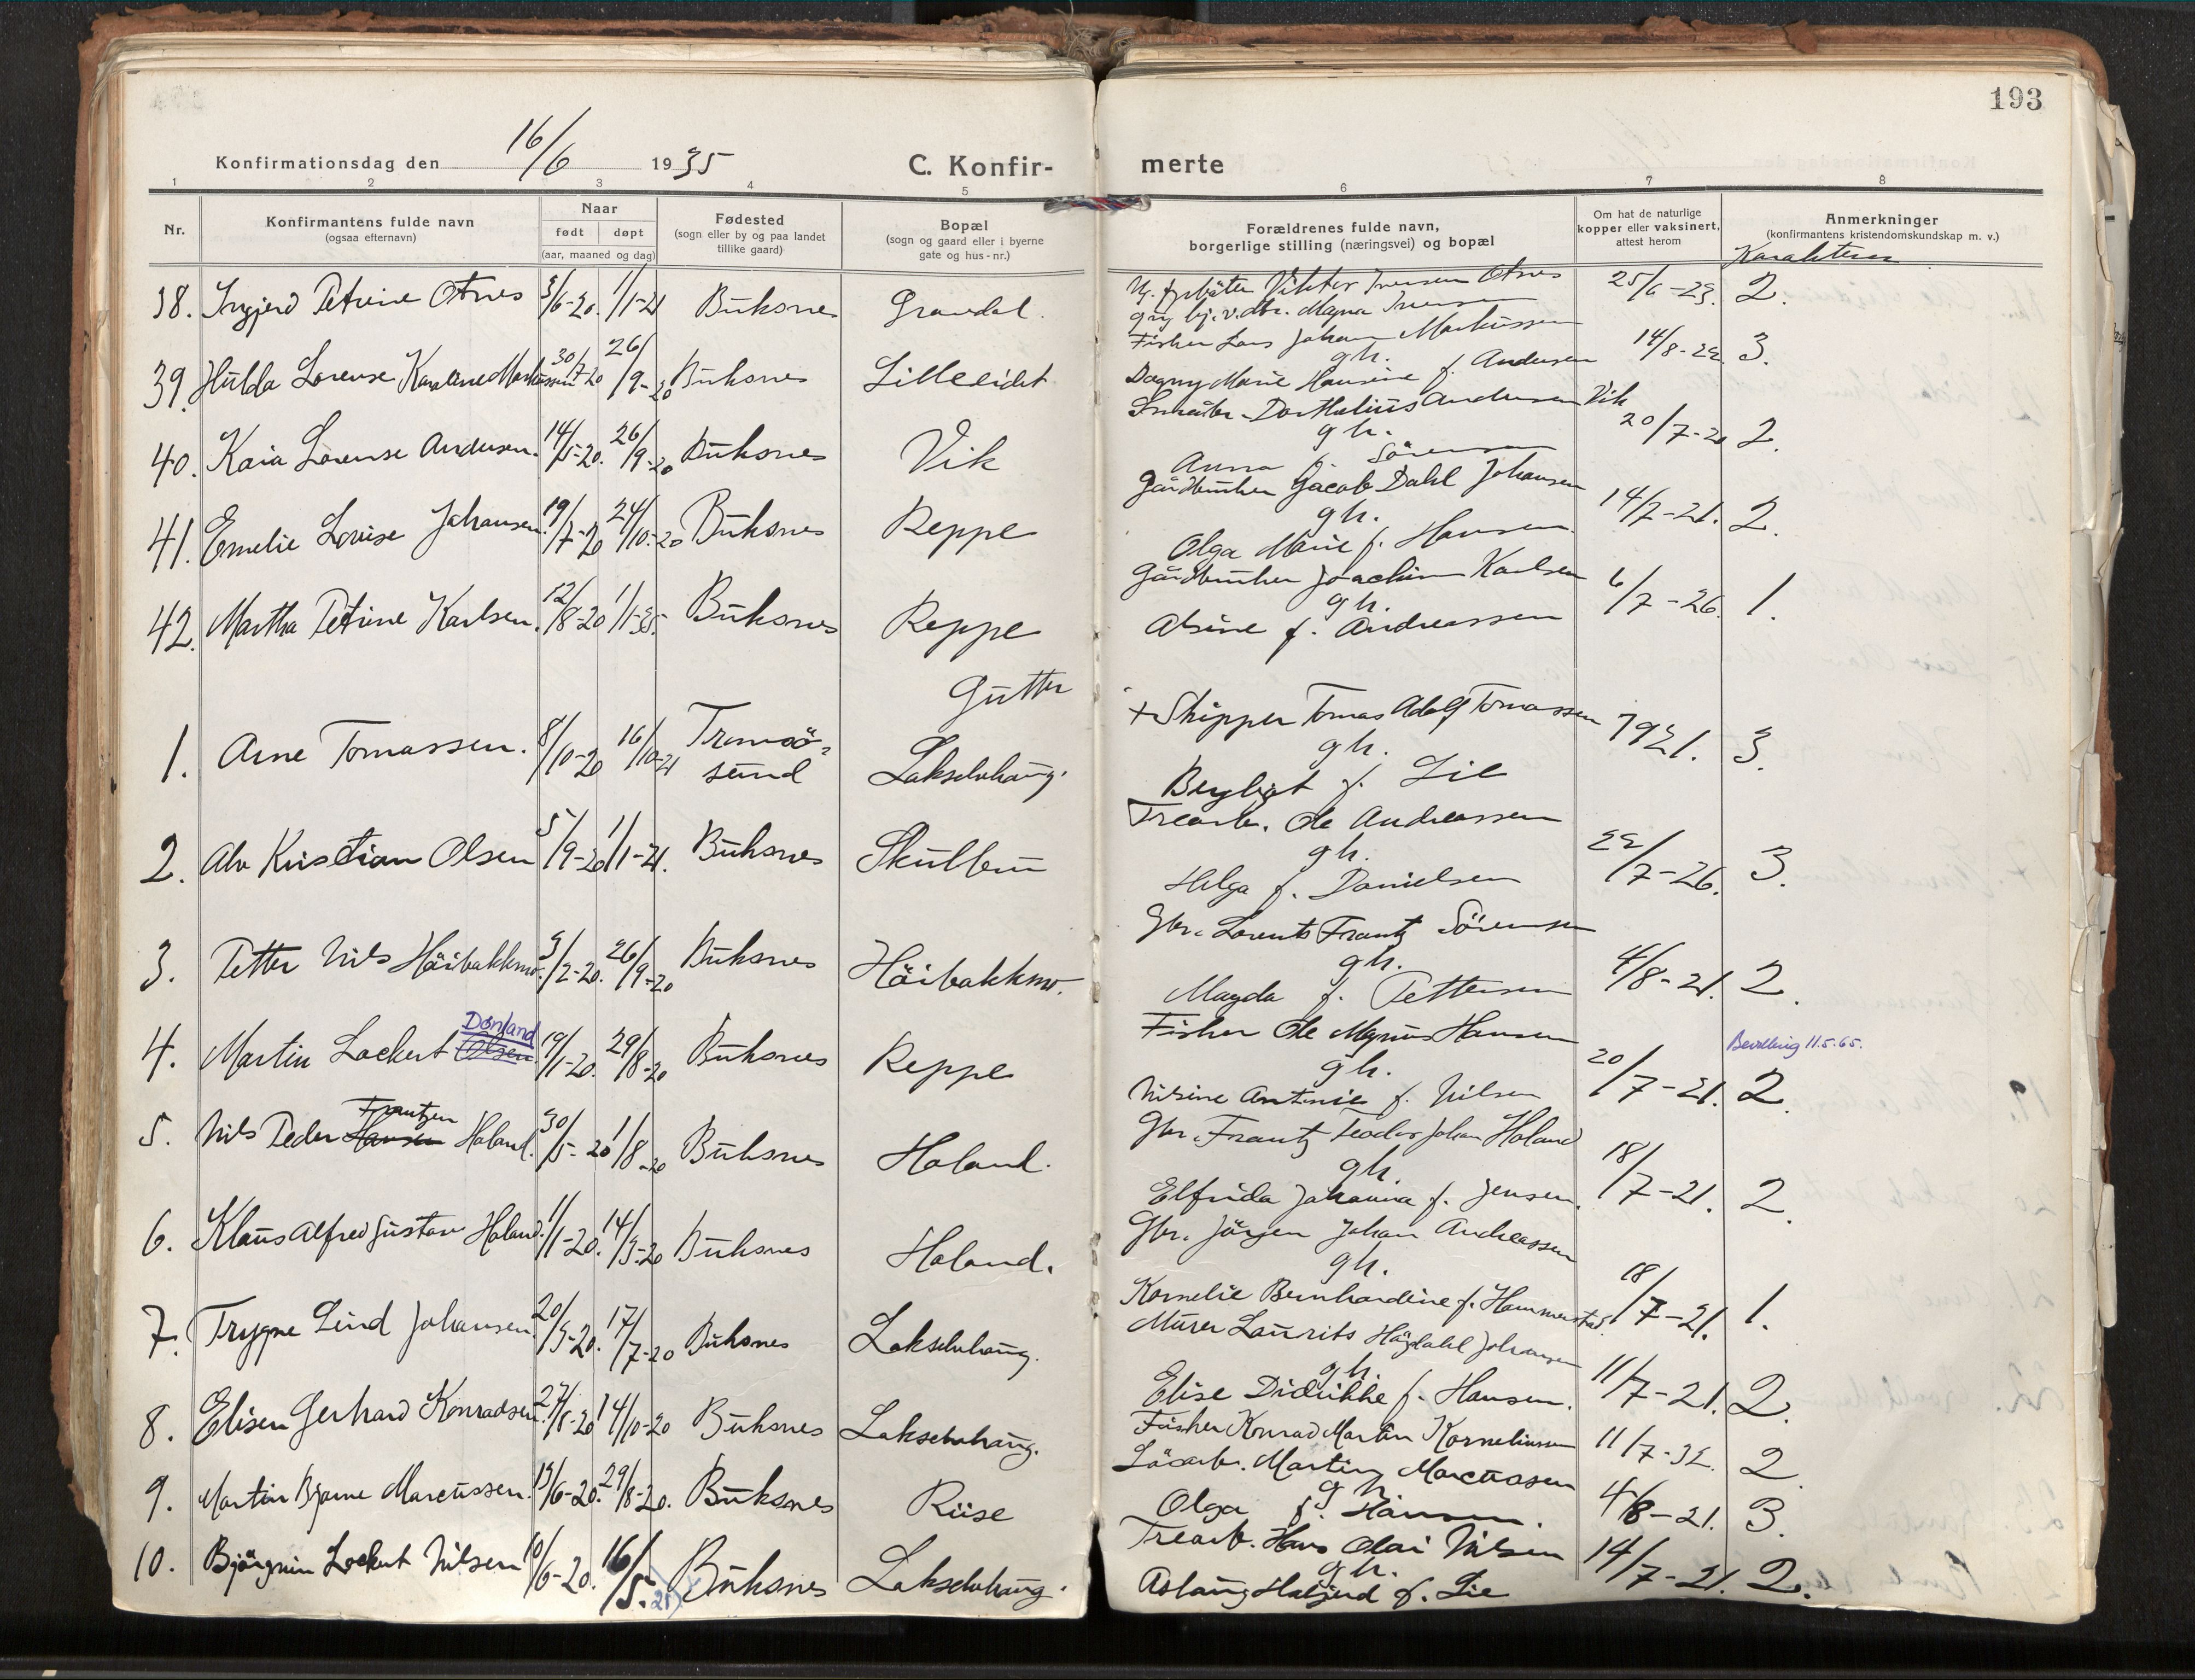 193
Konfirmationsdag den 16/6 1935 C. Konfir- merte
1 2 3 4 5 6 7 8
Nr.
Konfirmantens fulde navn
(ogsaa efternavn)
Naar
født døpt
(aar, maaned og dag)
Fødested
(sogn eller by og paa landet
tillike gaard)
Bopæl
(sogn og gaard eller i byerne
gate og hus-nr.)
Forældrenes fulde navn,
borgerlige stilling (næringsvei) og bopæl
Om hat de naturlige
kopper eller vaksinert,
attest herom
Anmerkninger
(konfirmantens kristendomskundskap m. v.)
Karakterer
38. Ingjerd Petrine Otnes 3/6-20. 1/1-21 Buksnes Gravdal.
Viktor Iversen Otnes
Magna Iversen
25/6-23. 2.
39. Hulda Lorense Karoline Markussen 30/7-20 26/9-20 Buksnes Lilleeidet
Fisker Lars Johan Markussen
gh.
Dagny Marie Hansine f. Andersen
14/8-22. 3.
40. Kaia Lorense Andersen. 14/5-20. 26/9-20 Buksnes Vik
Småbr. Dorthelius Andersen Vik
gh.
Anna f. Sörensen
20/7-21 2.
41. Emelie Lovise Johansen. 19/7-20 24/10-20 Buksnes Reppe
Gårdbruker Jacob Dahl Johansen
gh.
Olga Marie f. Hansen.
14/7-21. 2.
42. Martha Petrine Karlsen. 12/8-20 1/1-35. Buksnes Reppe
Gårdbruker Joachim Karlsen
gh.
Alsine f. Andreassen
6/7-26. 1.
Gutter
1. Arne Tomassen. 8/10-20 16/10-21 Tromsö-
sund Lakselvhaug.
+ Skipper Tomas Adolf Tomassen
gh.
Bergliot f. Lie
1921. 3.
2. Alv Kristian Olsen 5/9-20 1/1-21. Buksnes Skulbru
Trearb. Ole Andreassen
gh.
Helga f. Danielsen
22/7-26. 3.
3. Petter Nils Höibakkmo. 3/2-20. 26/9-20 Buksnes Höibakkmo.
Gbr. Lorents Frantz Sörensen
gh.
Magda f. Pettersen
4/8-21. 2.
Dønland
4. Martin Lockert Olsen 19/1-20. 29/8-20 Buksnes Reppe
Fisker Ole Magnus Hansen
gh.
Nilsine Antonie f. Nilsen
20/7-21. 2.
Bevilling 11.5.65.
Frantzen
5. Nils Peder Hansen Holand. 30/5-20 1/8-20 Buksnes Holand.
Gbr. Frantz Teodor Johan Holand
gh.
Elfrida Johanna f. Jensen.
18/7-21. 2.
6. Klaus Alfred Gustav Holand. 1/1-20. 14/3-20 Buksnes Holand.
Gbr. Jörgen Johan Andreassen
gh.
Kornelie Bernhardine f. Hammerstad.
18/7-21. 1.
7. Trygve Lind Johansen. 20/3-20. 17/7-20 Buksnes Lakselvhaug.
Murer Laurits Högdahl Johansen
gh.
Elise Didrikke f. Hansen.
11/7-21. 2.
8. Elisen Gerhard Konradsen. 27/8-20 14/10-20 Buksnes Lakselvhaug.
Fisker Konrad Martin Kornelinssen
11/7-32. 2
9. Martin Bjarne Marcussen. 13/6-20. 29/8-20. Buksnes Riise
Lösarb. Martin Marcussen
gh
Olga f. Hansen.
4/8-21. 3.
10. Björgvin Lockert Nilsen 10/6-20. 16/5-21 Buksnes Lakselvhaug.
Trearb. Hans Olai Nilsen
gh.
Aslaug Halgerd f. Lie
14/7-21. 2.